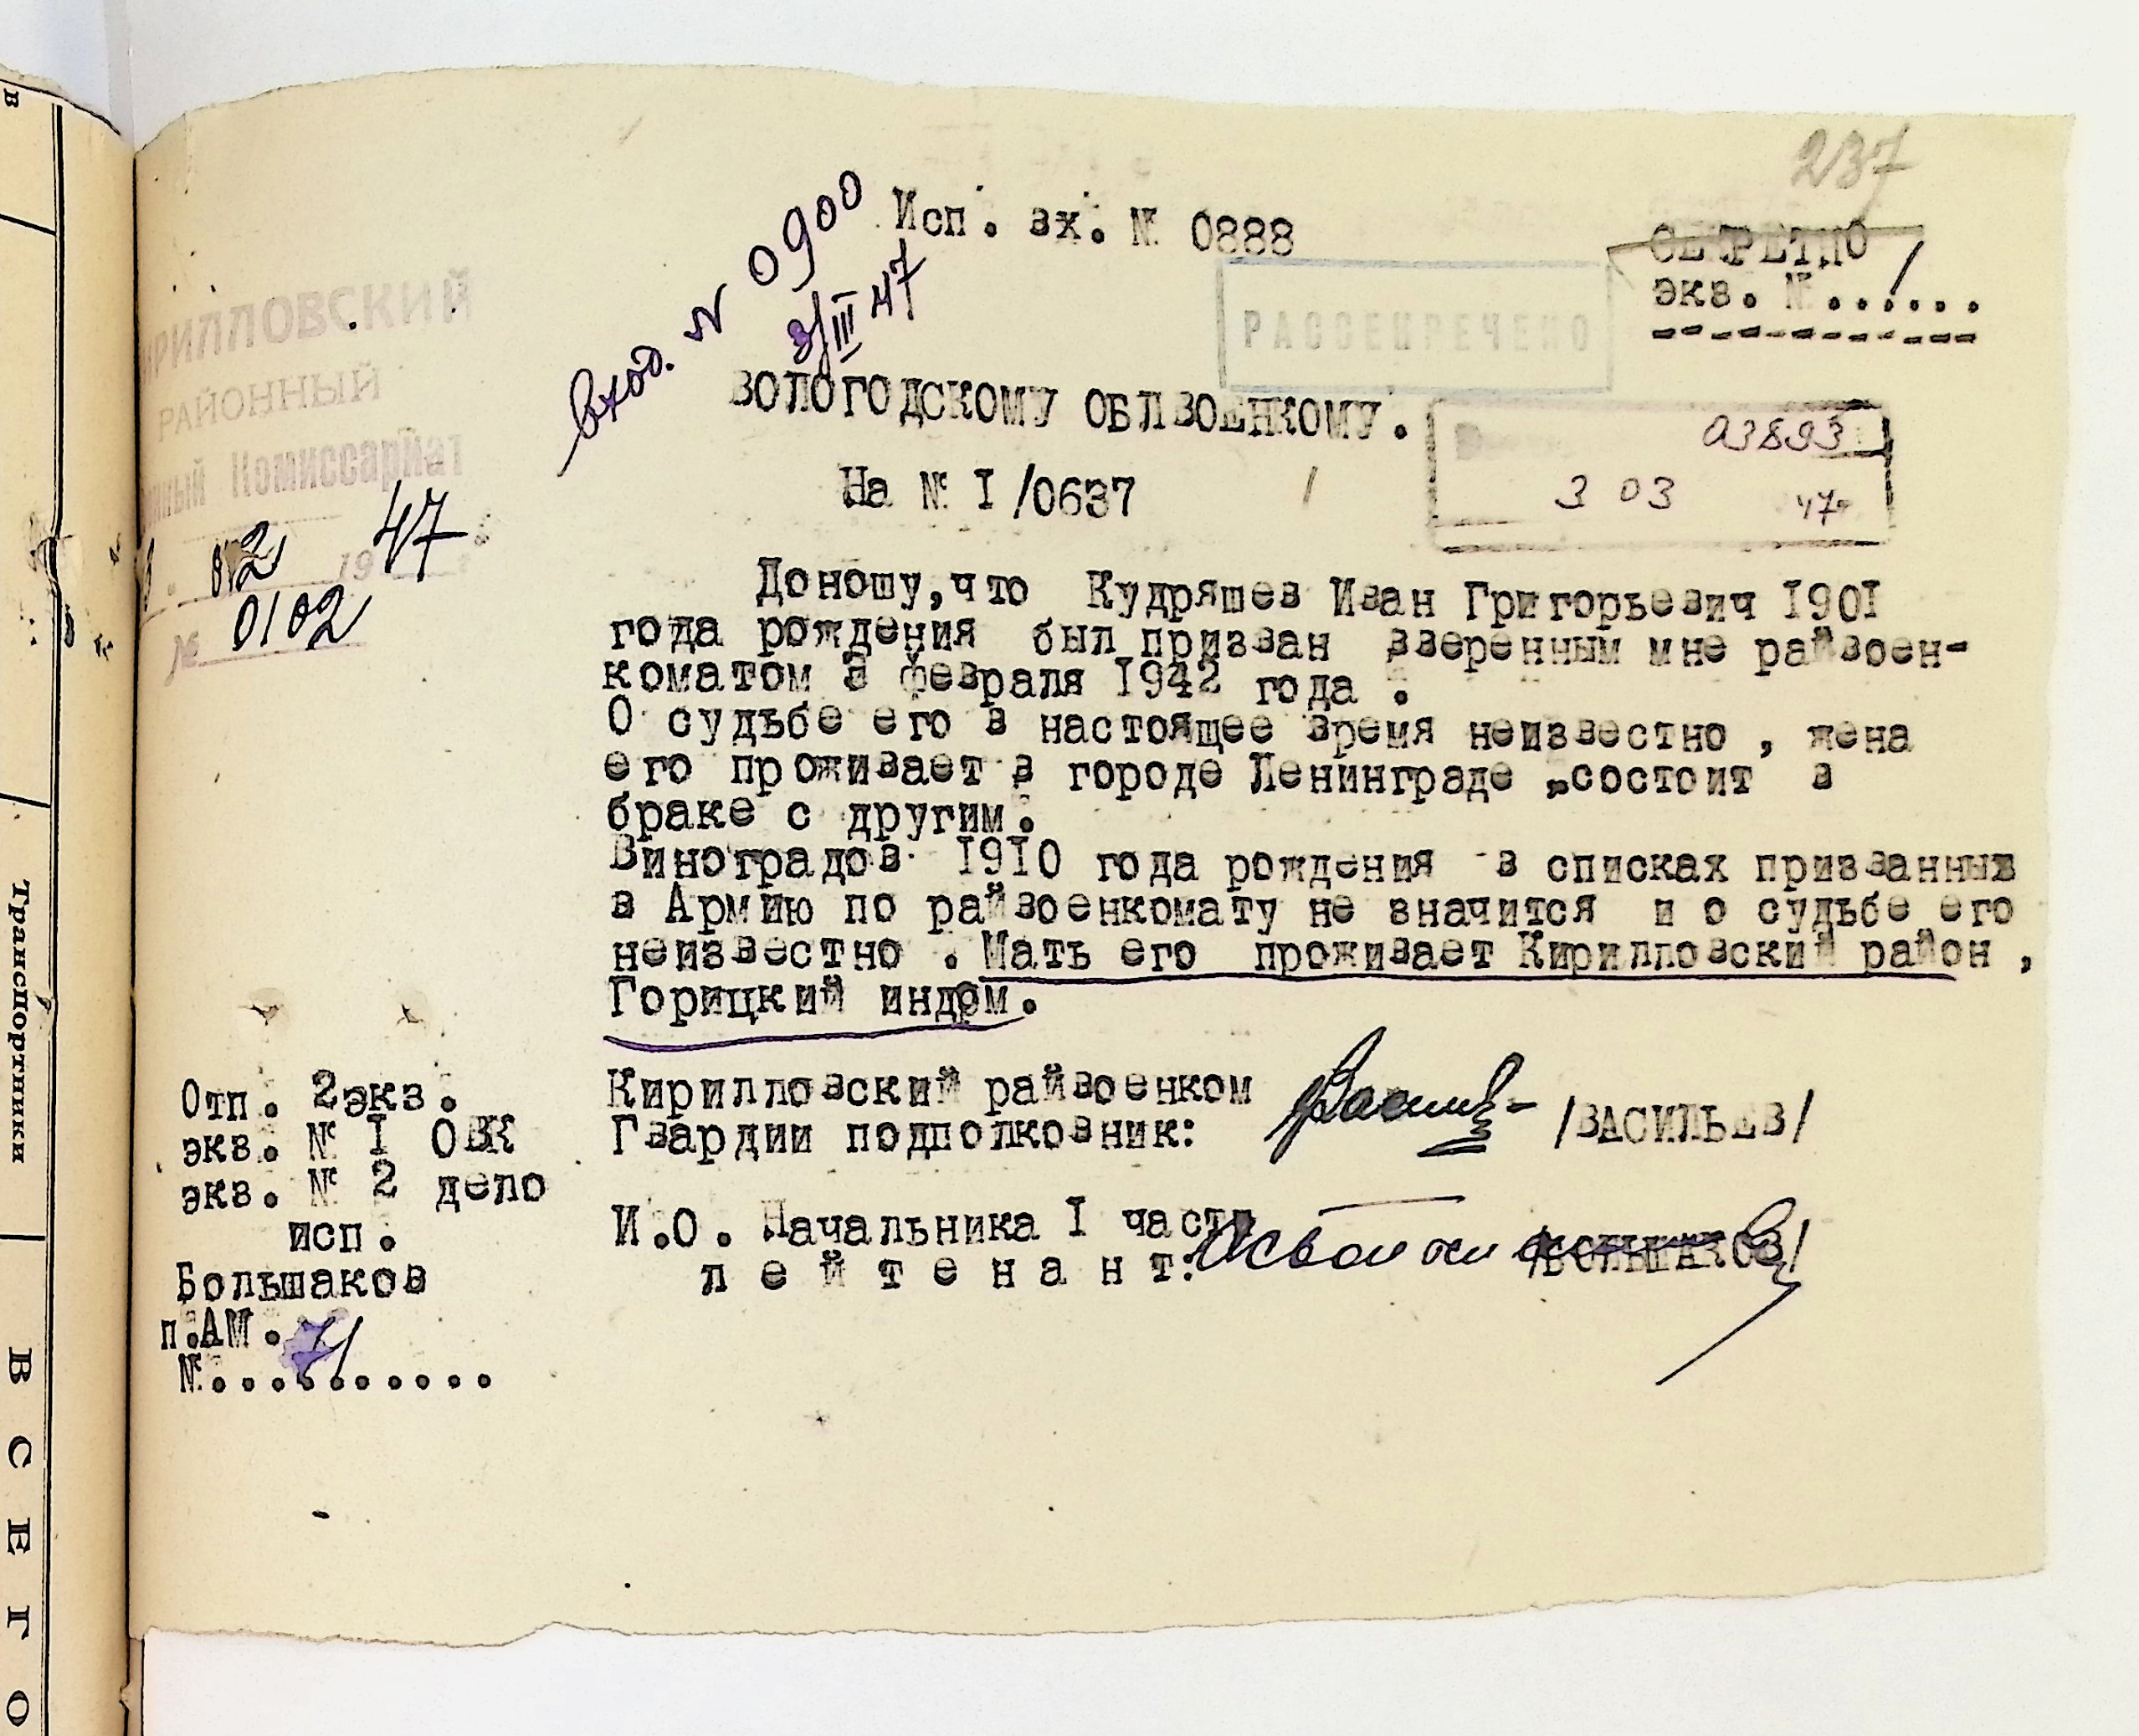 237
Исп. вх. № 0888
СЕКРЕТНО
экз. №.......
вход. N 0900
3/III 47
РАССЕКРЕЧЕНО
КИРИЛЛОВСКИЙ
РАЙОННЫЙ
Комиссариат
1947
№ 0102
ВОЛОГОДСКОМУ ОБЛВОЕНКОМУ.
03893
3 03 47
На № I/0637
Доношу,что Кудряшев Иван Григорьевич I90I
года рождения был призван вверенным мне райвоен-
коматом 3 февраля I942 года .
О судьбе его в настоящее время неизвестно , жена
его проживает в городе Ленинграде ,состоит в
браке с другим.
Виноградов I9I0 года рождения в списках призванных
в Армию по райвоенкомату не значится и о судьбе его
неизвестно . Мать его проживает Кирилловский район ,
Горицкий индом.
Кирилловский райвоенком
Гвардии подполковник: /ВАСИЛЬЕВ/
И.О. Начальника I части
лейтенант: /БОЛЬШАКОВ/
Отп. 2экз.
экз. № I ОВК
экз. № 2 дело
исп.
Большаков
п.АМ.
№..........
Транспортники
ВСЕГО